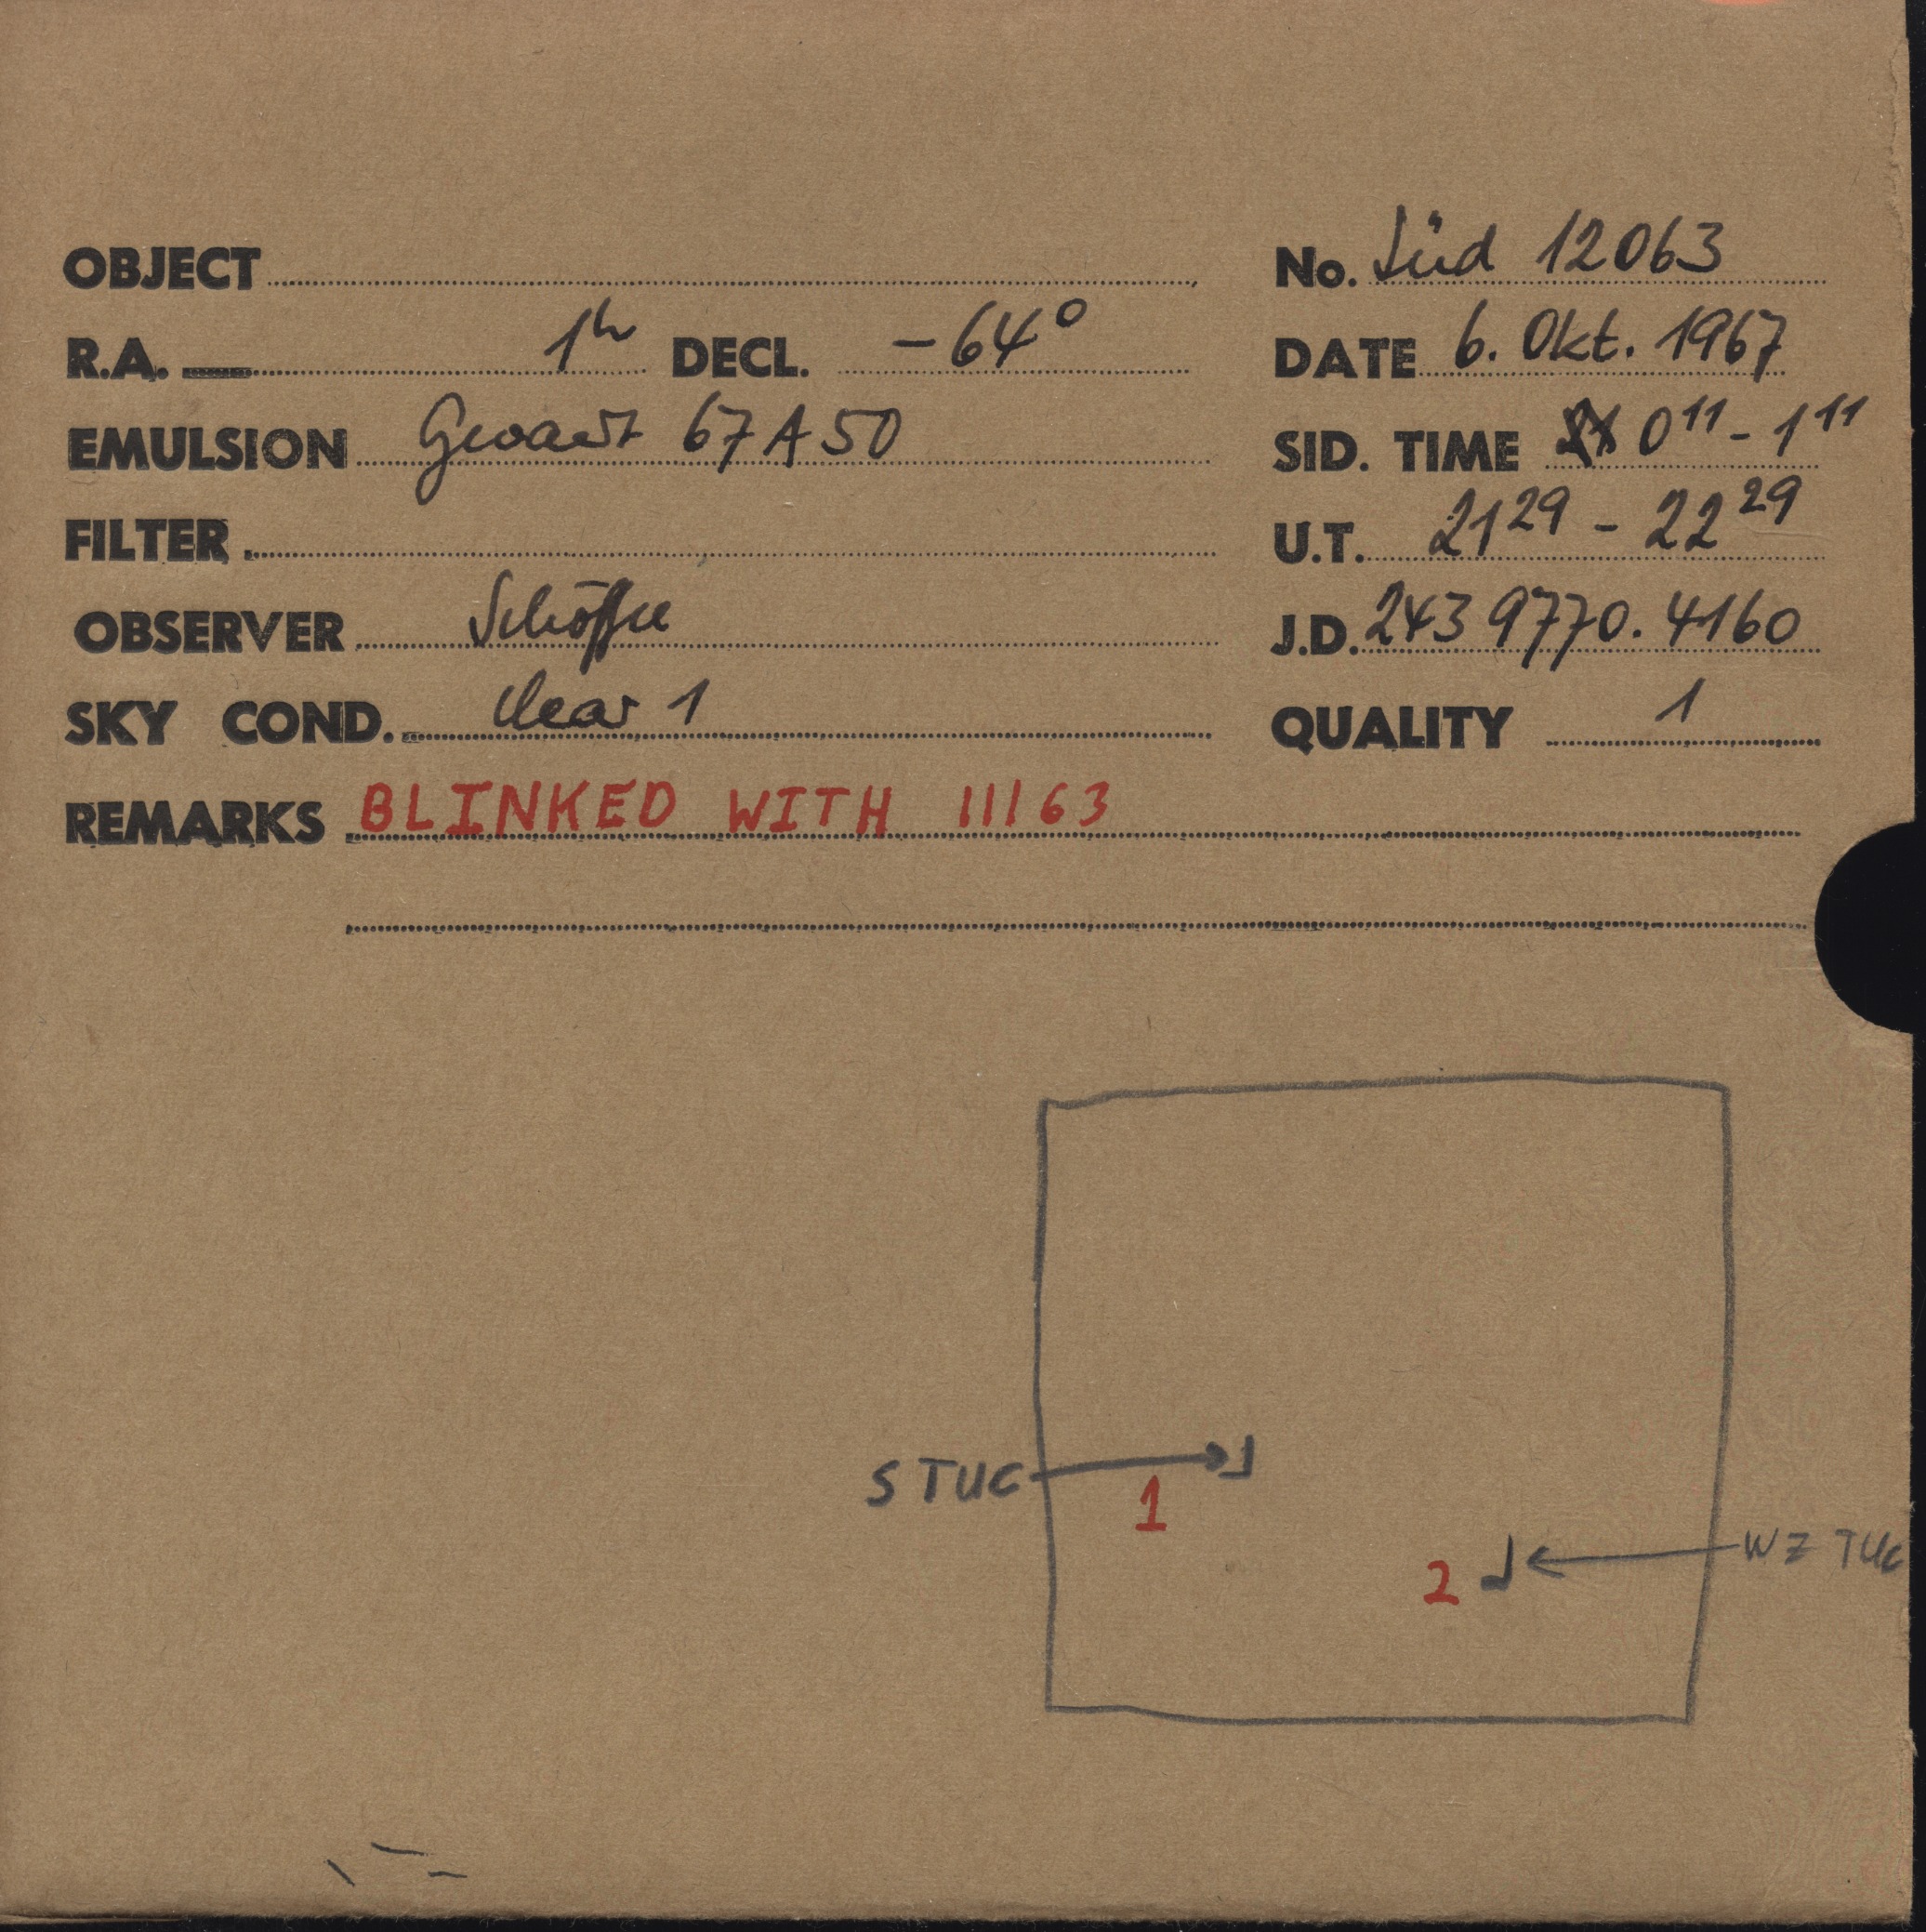 OBJECT
No. Süd 12063
R.A. 1h DECL. -64°
DATE 6. Okt. 1967
EMULSION Gevaert 67A50
SID. TIME 0 11 - 1 11
FILTER
U.T. 21 29 - 22 29
OBSERVER
J.D. 243 9770. 4160
SKY COND. clear 1
QUALITY 1
REMARKS BLINKED WITH 11163
S TUC
1
WZ TUC
2